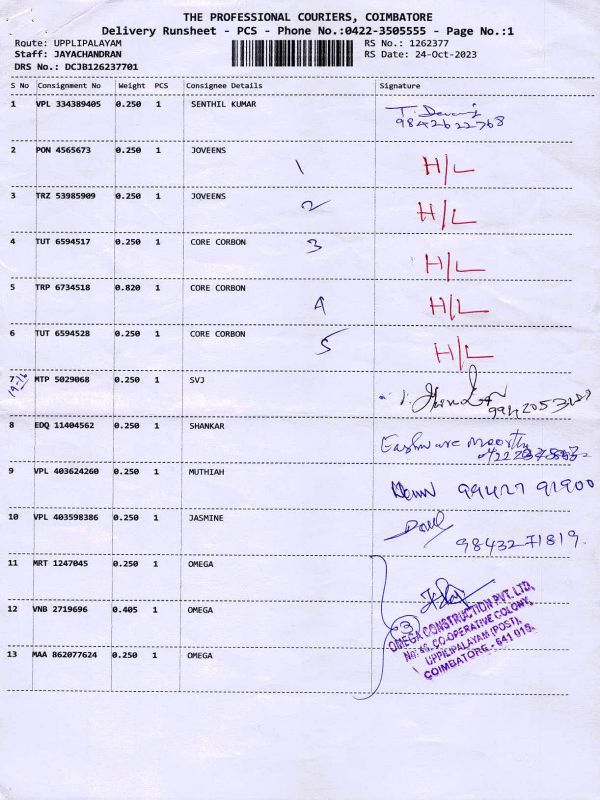 THE PROFESSIONAL COURIERS, COIMBATORE
Delivery Runsheet - PCS - Phone No.:0422-3505555 - Page No.:1
Route: UPPLIPALAYAM
Staff: JAYACHANDRAN
DRS No.: DCJB126237701
RS No.: 1262377
RS Date: 24-Oct-2023
S No Consignment No Weight PCS Consignee Details Signature
1 VPL 334389405 0.250 1 SENTHIL KUMAR
9842622768
2 PON 4565673 0.250 1 JOVEENS 1 H/L
3 TRZ 53985909 0.250 1 JOVEENS 2 H/L
4 TUT 6594517 0.250 1 CORE CORBON 3 H/L
5 TRP 6734518 0.820 1 CORE CORBON 4 H/L
6 TUT 6594528 0.250 1 CORE CORBON 5 H/L
7 MTP 5029068 0.250 1 SVJ
8 EDQ 11404562 0.250 1 SHANKAR
9 VPL 403624260 0.250 1 MUTHIAH 99427 91900
10 VPL 403598386 0.250 1 JASMINE
98432 71819.
11 MRT 1247045 0.250 1 OMEGA
12 VNB 2719696 0.405 1 OMEGA 3
13 MAA 862077624 0.250 1 OMEGA
OMEGA CONSTRUCTION PVT. LTD,
CO-OPERATIVE COLONY,
UPPILIPALAYAM (POST),
COIMBATORE - 641 015.